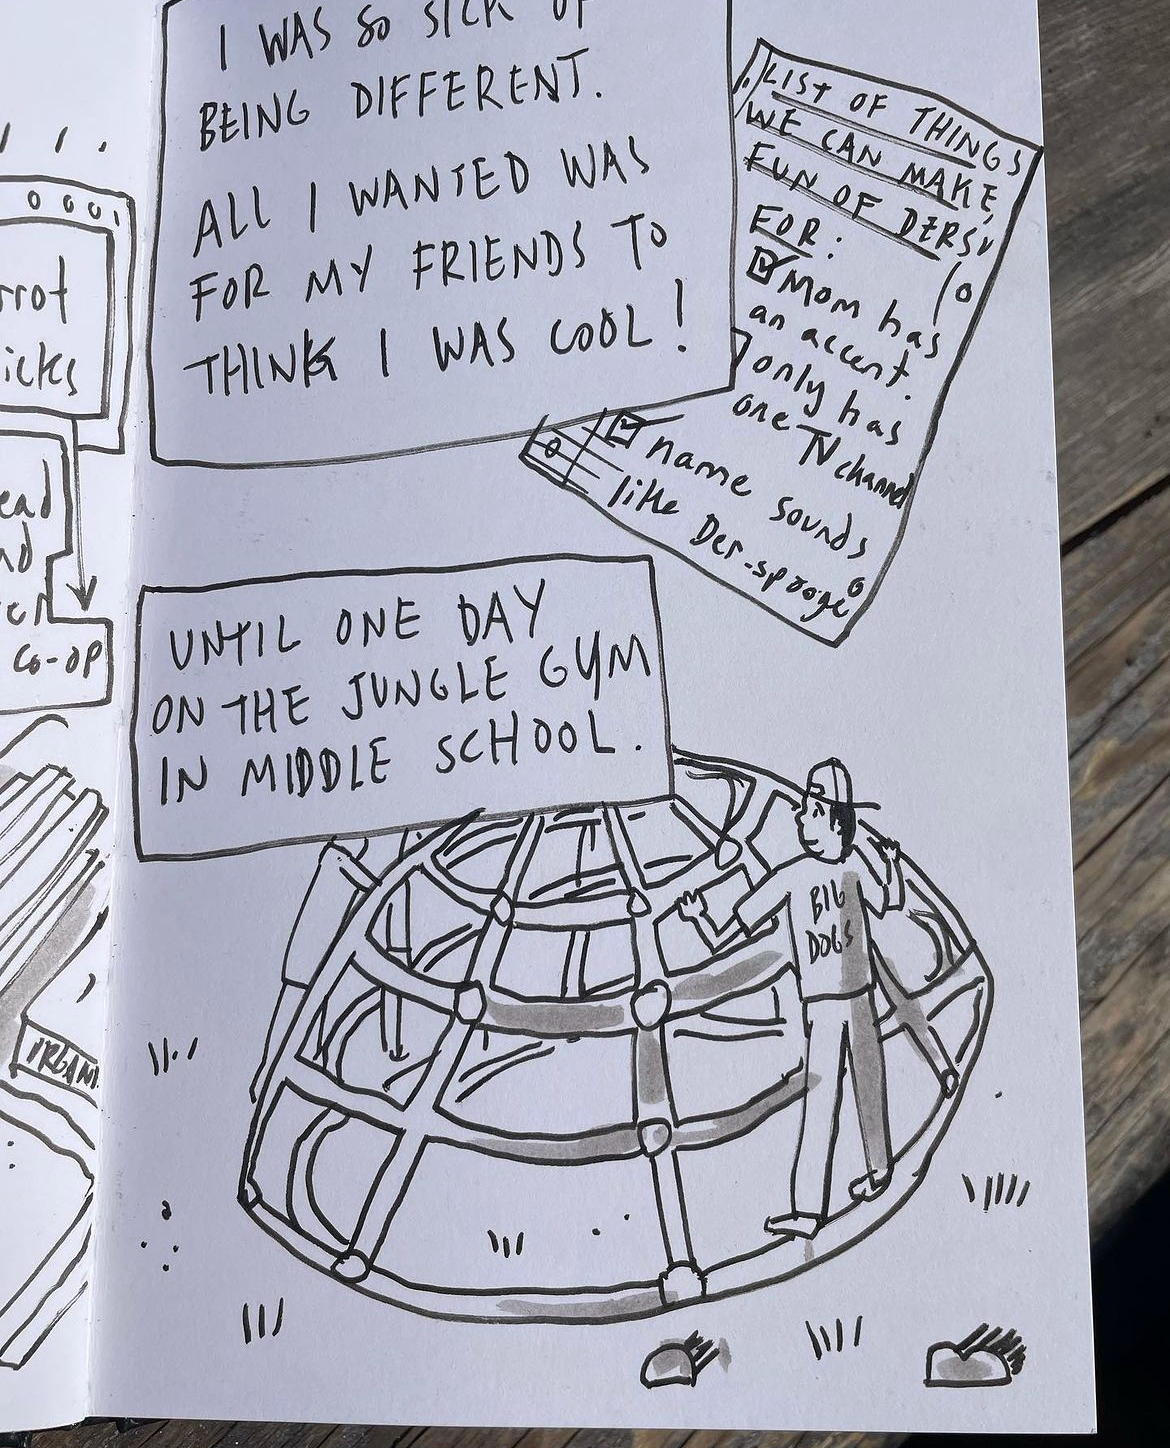 I WAS SO SICK OF
BEING DIFFERENT.
ALL I WANTED WAS
FOR MY FRIENDS TO
THINK I WAS COOL!
LIST OF THINGS
WE CAN MAKE
FUN OF DERSU
FOR:
Mom has
an accent.
only has
one TV channel
name sounds
like Der-sponge
UNTIL ONE DAY
ON THE JUNGLE GYM
IN MIDDLE SCHOOL.
BIG
DOGS
rrot
icks
ead
nd
Co-op